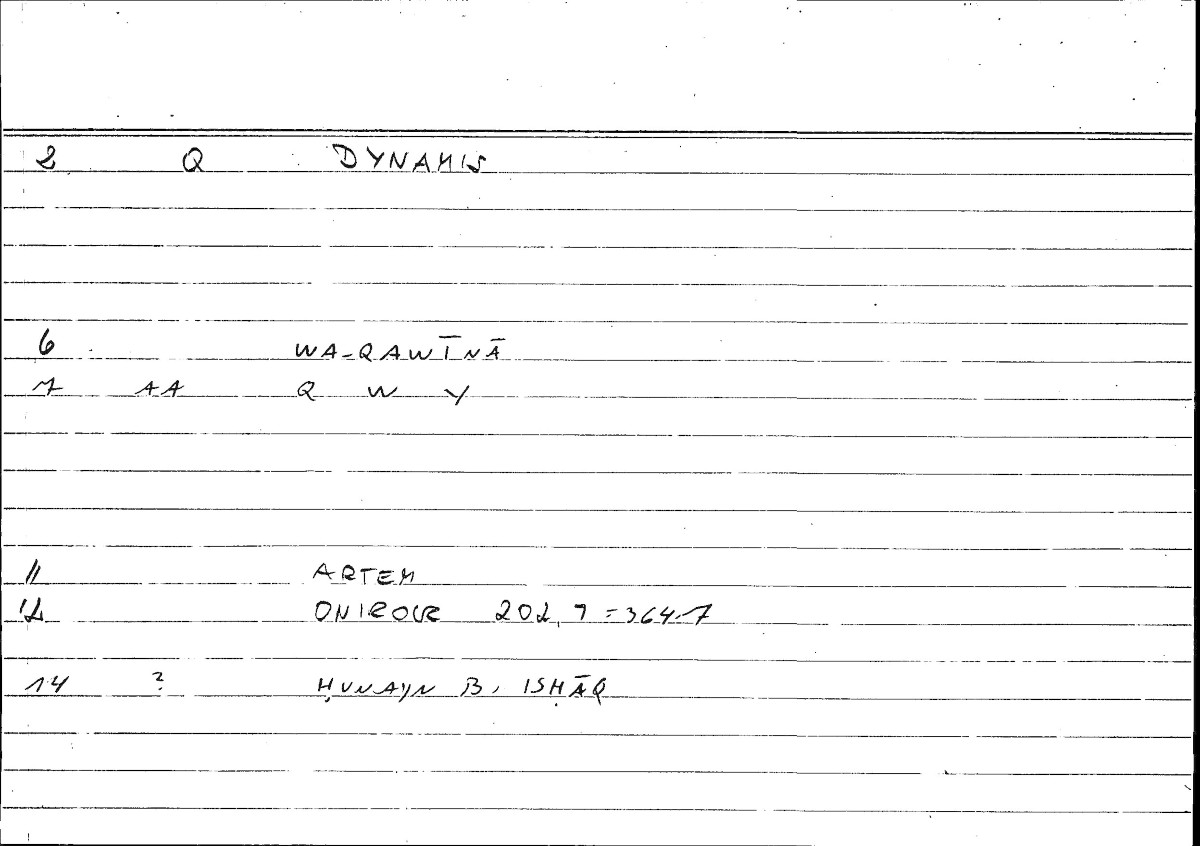 2 Q DYNAMIS
6 WA-QAWĪNĀ
7 AA Q W Y
11 ARTEM
12 ONIROCR 202,7=364.7
14 ? ḤUNAYN B. ISḤĀQ